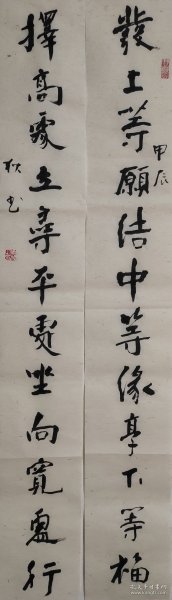 發上等願結中等緣享下等福
甲辰
擇高處立尋平處坐向寬處行
秋书